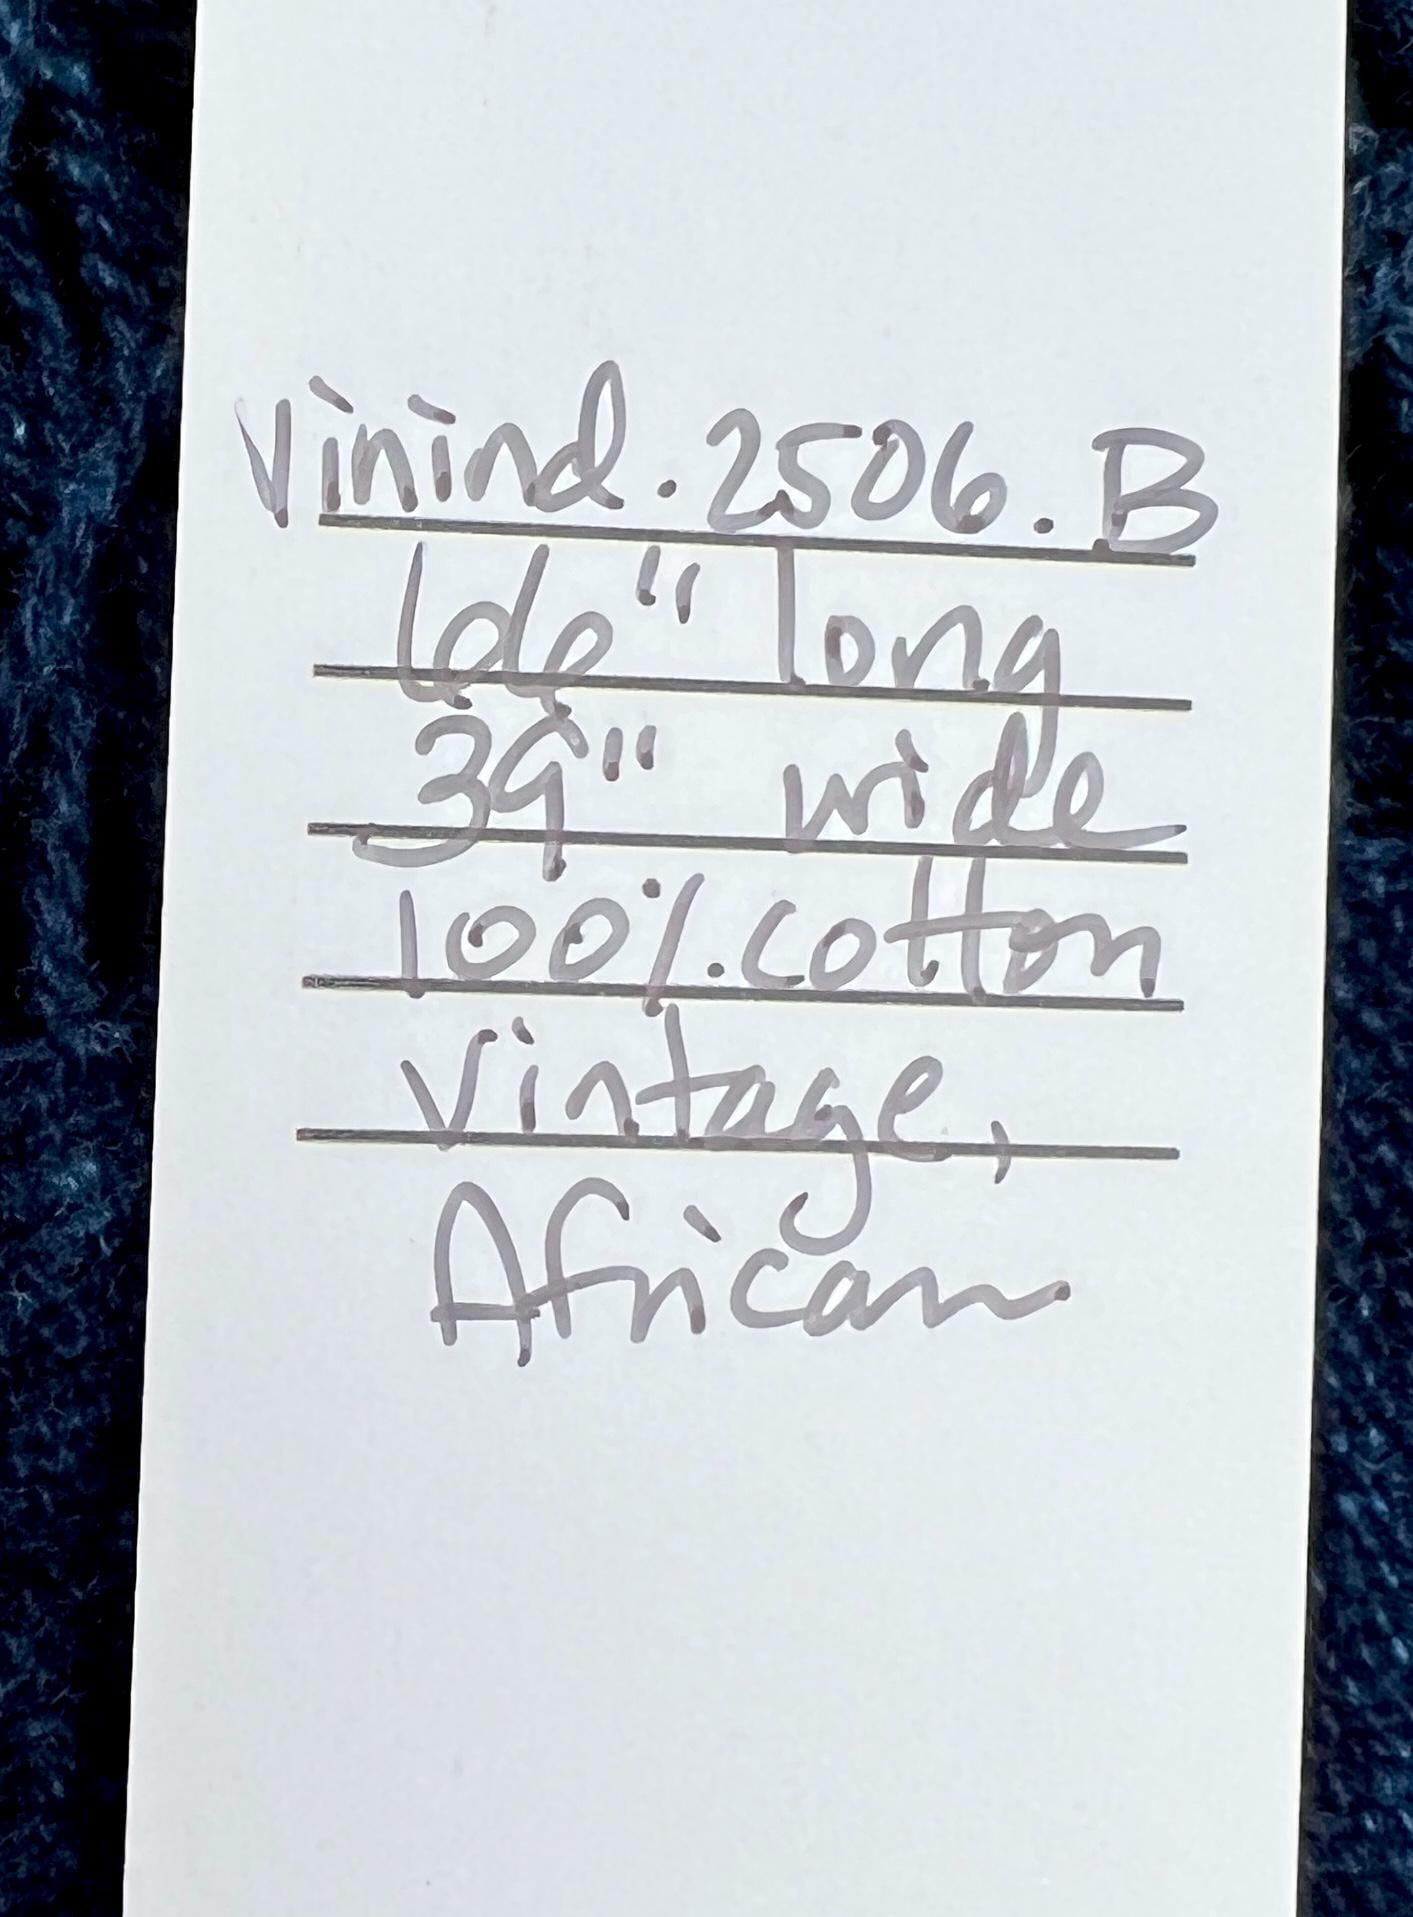 Vinind.2506.B
66" long
39" wide
100%.cotton
Vintage,
African